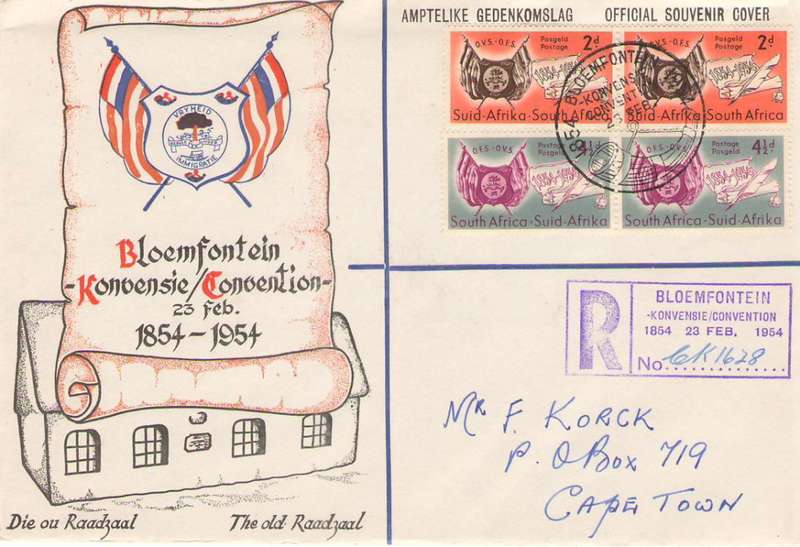 AMPTELIKE GEDENKOMSLAG OFFICIAL SOUVENIR COVER
VRYHEID
IMMIGRATIE
Bloemfontein
-Konvensie/Convention-
23 feb.
1854-1954
Die ou Raadzaal
The old Raadzaal
O.V.S.-O.F.S.
Posgeld
Postage
2d
Suid-Afrika-South Africa
Posgeld
Postage
2d
Suid-Afrika-South Africa
O.F.S.-O.V.S.
Postage
Posgeld
4½d
South Africa-Suid-Afrika
Postage
Posgeld
4½d
South Africa-Suid-Afrika
1854 BLOEMFONTEIN
-KONVENSIE
CONVENTI
23 FEB.
R
BLOEMFONTEIN
-KONVENSIE/CONVENTION
1854 23 FEB. 1954
No. CK1628
Mr F. KORCK
P. O Box 719
CAPE TOWN